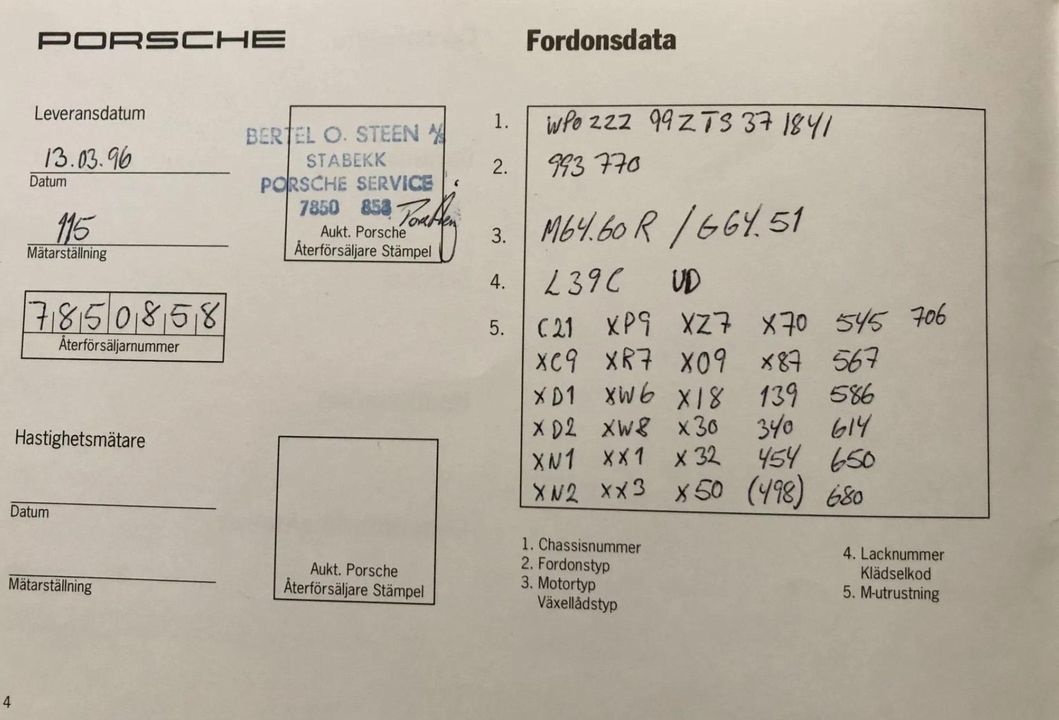 PORSCHE
Fordonsdata
Leveransdatum
13.03.96
Datum
115
Mätarställning
7850858
Återförsäljarnummer
BERTEL O. STEEN A/S
STABEKK
PORSCHE SERVICE
7850 858
Aukt. Porsche
Återförsäljare Stämpel
Hastighetsmätare
Datum
Mätarställning
Aukt. Porsche
Återförsäljare Stämpel
1. WP0ZZZ 99ZTS37 1841
2. 993 770
3. M64.60R / G64.51
4. L39C UD
5. C21 XP9 XZ7 X70 545 706
XC9 XR7 X09 X87 567
XD1 XW6 X18 139 586
XD2 XW8 X30 340 614
XN1 XX1 X32 454 650
XN2 XX3 X50 (498) 680
1. Chassisnummer
2. Fordonstyp
3. Motortyp
Växellådstyp
4. Lacknummer
Klädselkod
5. M-utrustning
4